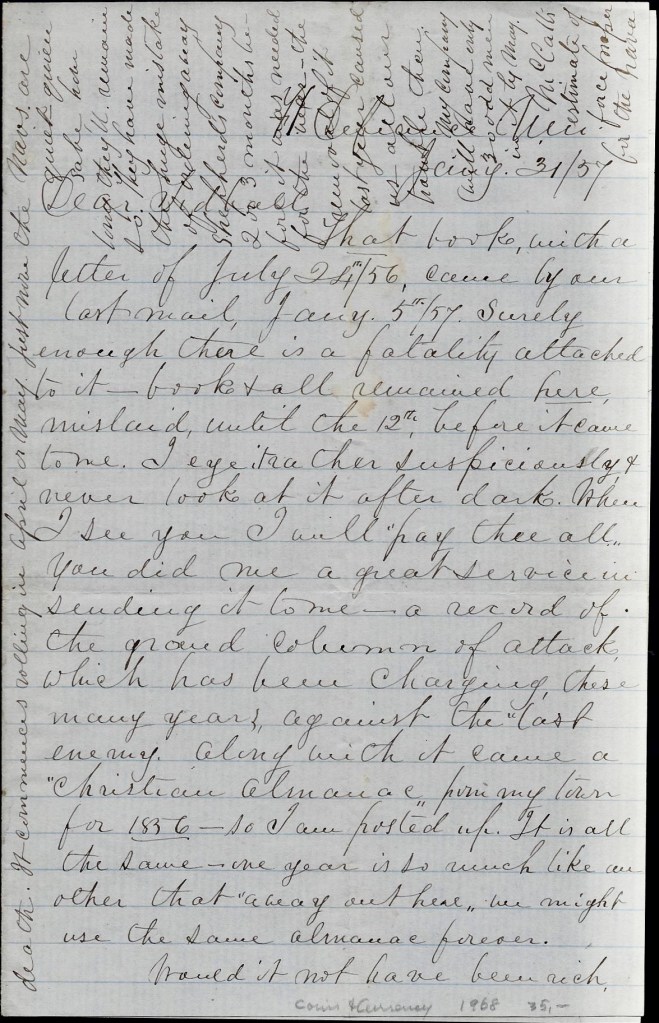 Jany. 31/57
Dear
That book, with a
letter of July 24th/56, came by our
last mail, Jany. 5th/57. Surely
enough there is a fatality attached
to it — book & all remained here,
mislaid, until the 12th, before it came
to me. I eye it rather suspiciously, &
never look at it after dark. When
I see you I will "pay thee all"
You did me a great service in
sending it to me — a record of
the grand column of attack,
which has been charging, these
many years, against the "last
enemy. Along with it came a
"Christian Almanac" from my town
for 1856 — so I am posted up. It is all
the same — one year is so much like an
other that "away out here" we might
use the same almanac forever.
Would it not have been rich,
death. It commences rolling in April or May. Just now the Navos. are
quiet, given
how
long they'll remain
so. They have made
the huge mistake
of
Shepherd's company
2 or 3 months be-
fore it was needed
for the
removal of it
last year caused
us all our
trouble then.
My company
will have only
30 odd men
in it by May.
McCall's
estimate of
force proper
for the Nava
Coin & Currency 1968 35,—